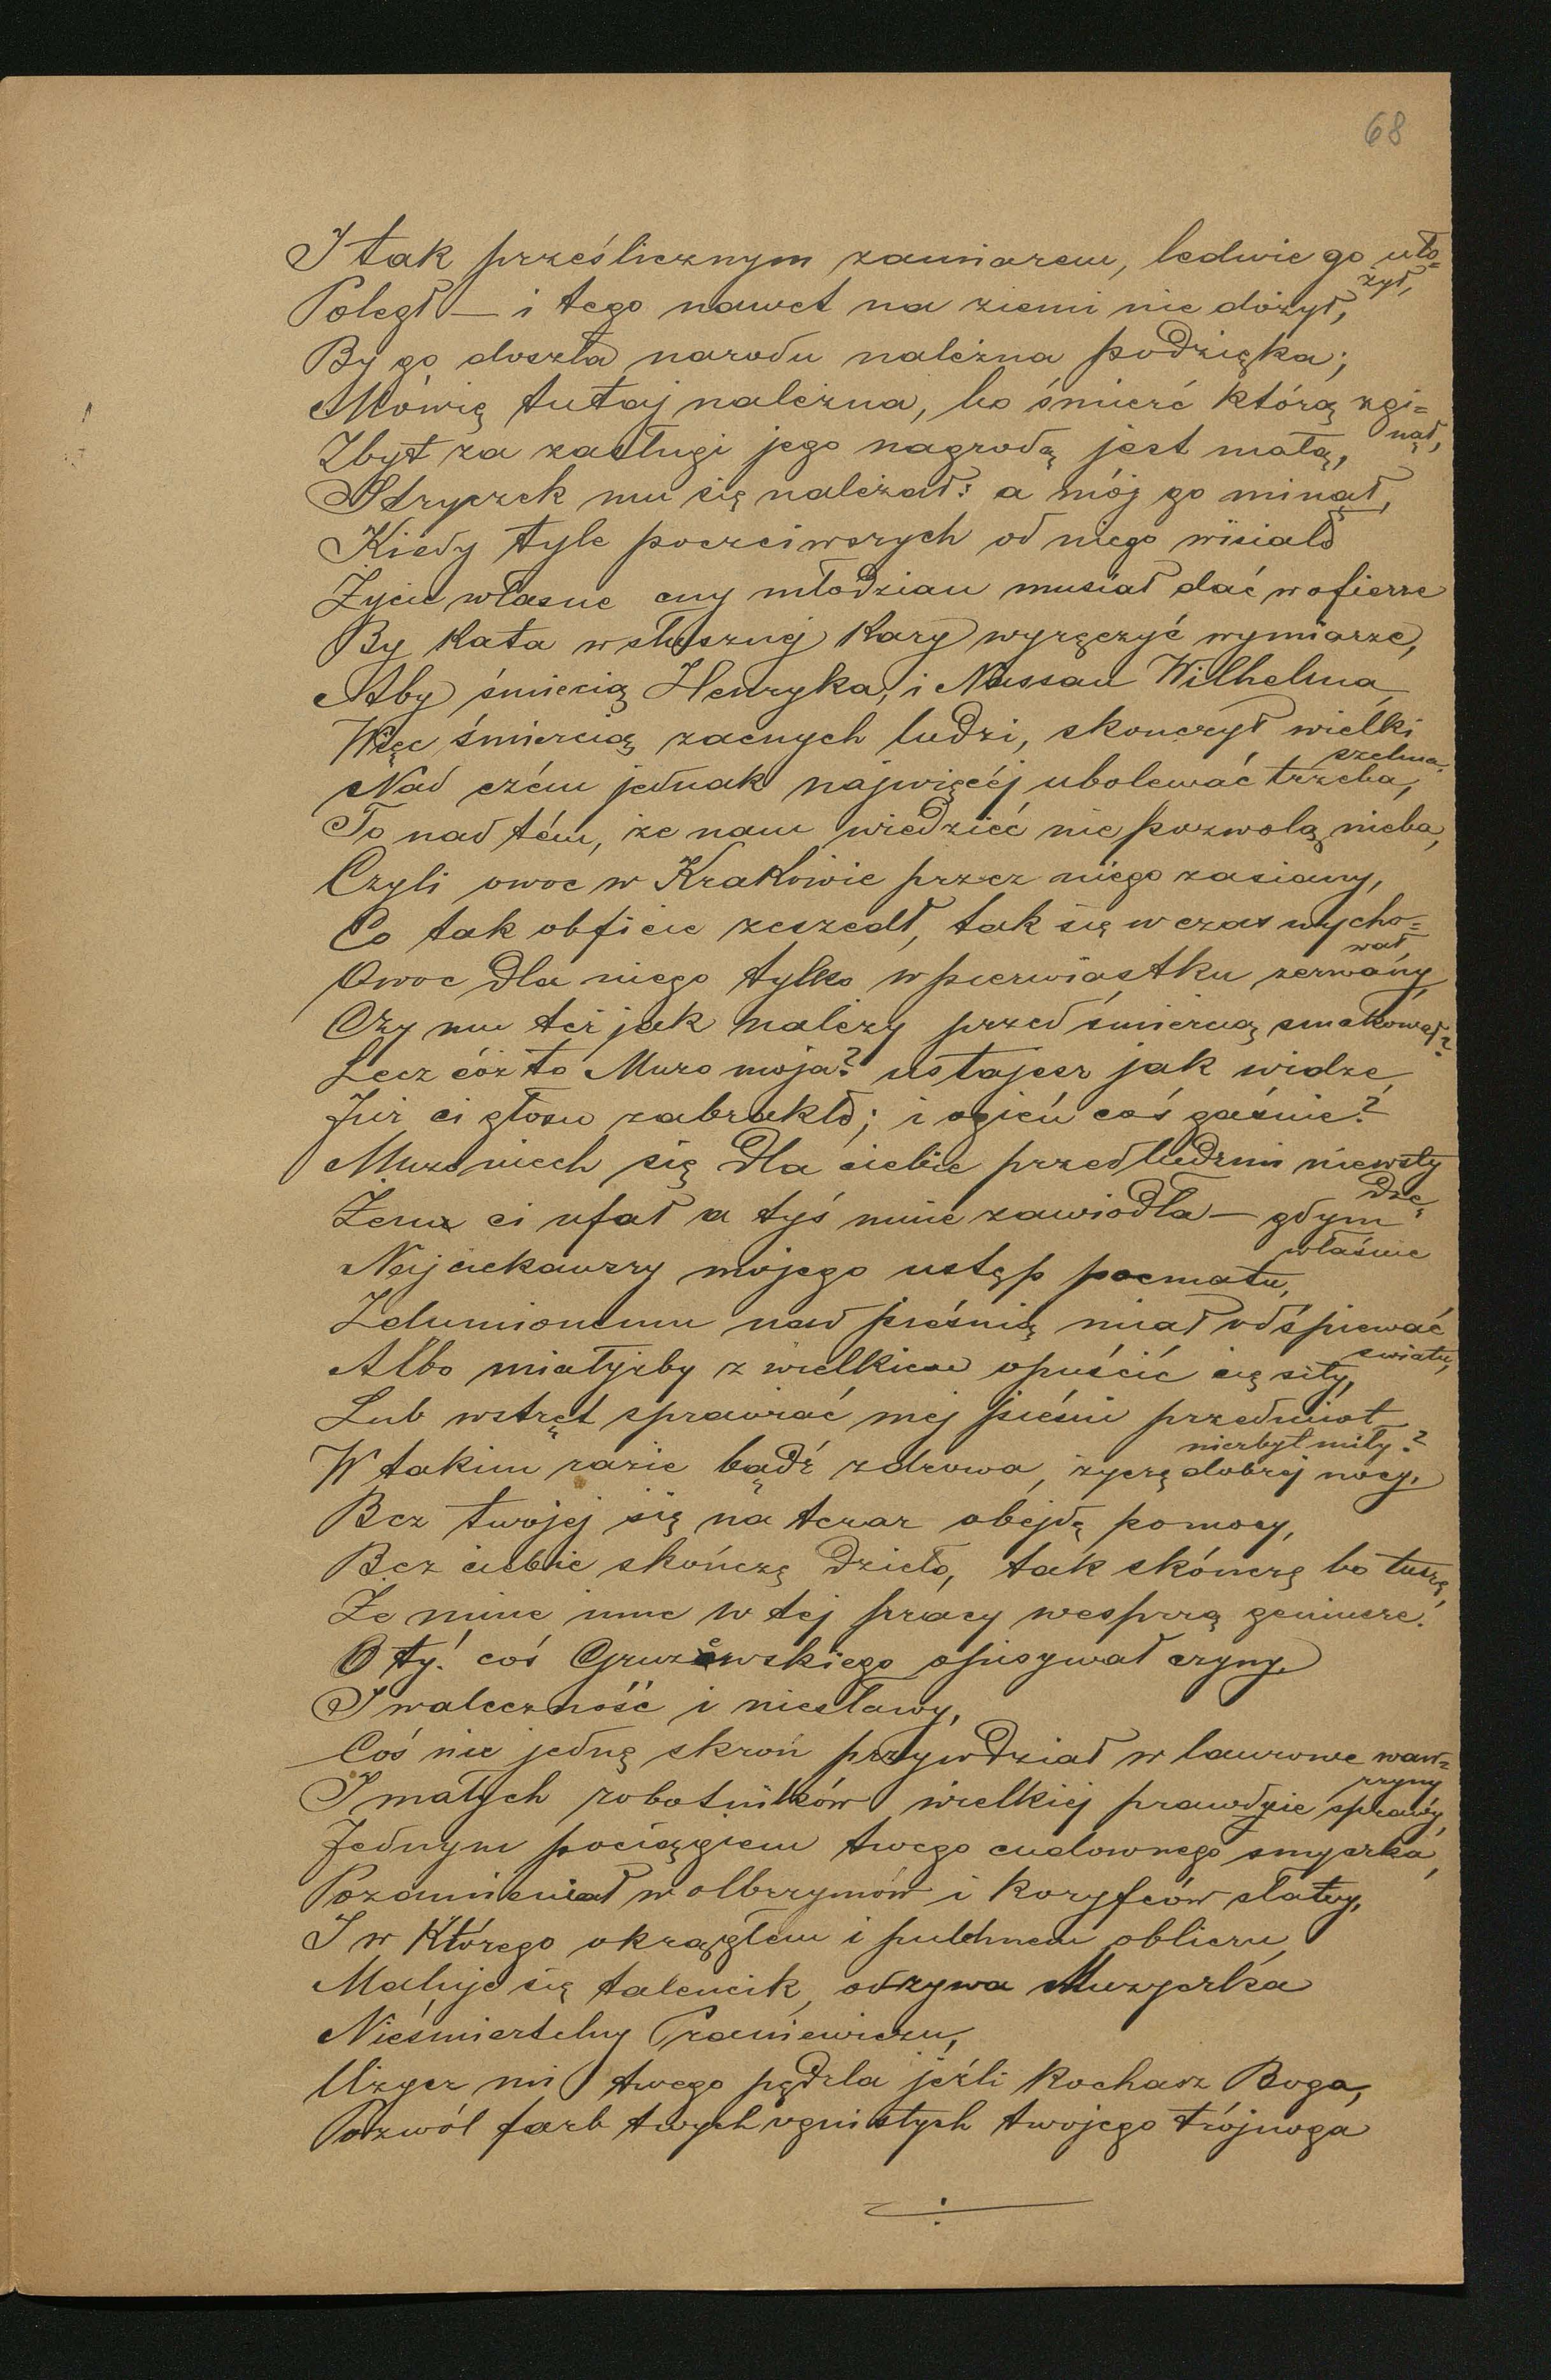 68
I tak prześlicznym zamiarem, ledwie go uło=
żył,
Poległ — i tego nawet na ziemi nie dożył,
By go doszła narodu należna podzięka;
Mówię tutaj należna, bo śmierć którą zgi=
nął,
Zbyt za zasługi jego nagrodą jest małą,
Stryczek mu się należał: a mój go minął,
Kiedy tyle poczciwszych od niego wisiało
Życie własne cny młodzian musiał dać w ofierze
By kata w słusznej kary wyręczyć wymiarze,
Aby śmiecią Henryka, i Nassau Wilhelma,
Więc śmiercią zacnych ludzi, skończył wielki
szelma.
Nad czém jednak najwięcéj ubolewać trzeba,
To nad tém, że nam wiedzieć nie pozwolą nieba,
Czyli owoc w Krakowie przez niego zasiany,
Co tak obficie zeszedł, tak się w czas wycho=
wał,
Owoc dla niego tylko w pierwiastku zerwany
Czy mu też jak należy przed śmiercią smakował?
Lecz cóż to Muzo moja? ustajesz jak widzę,
Już ci głosu zabrakło; i ogień coś gaśnie?
Muzo niech się dla ciebie przed ludźmi niewsty
dzę,
Żem ci ufał a tyś mnie zawiodła — gdym
właśnie
Najciekawszy mojego ustęp poematu,
Zdumionemu nad pieśnią miał odśpiewać
światu,
Albo miałyżby z wielkiem opuścić cię siły,
Lub wstręt sprawiać mej pieśni przedmiot
niezbyt miły?
W takim razie bądź zdrowa, życzę dobrej nocy,
Bez twojej się na teraz obejdę pomocy,
Bez ciebie skończę dzieło, tak skónczę bo tuszę,
Że mnie inne w tej pracy wesprą geniusze.
O ty! coś Gruzewskiego opisywał czyny
I waleczność i niesławy,
Coś nie jednę skroń przywdział w laurowe waw=
rzyny
I małych robotników wielkiej prawdziwie sprawy,
Jednym pociągiem twego cudownego smyczka,
Pozamieniał w olbrzymów i koryfeów sławy,
I w którego okrągłem i pulchnem obliczu,
Maluje się talencik, odzywa Muzyczka
Nieśmiertelny Praniewiczu,
Użycz mi twego pędzla jeźli kochasz Boga,
Pozwól farb twych ognistych twojego trójnoga